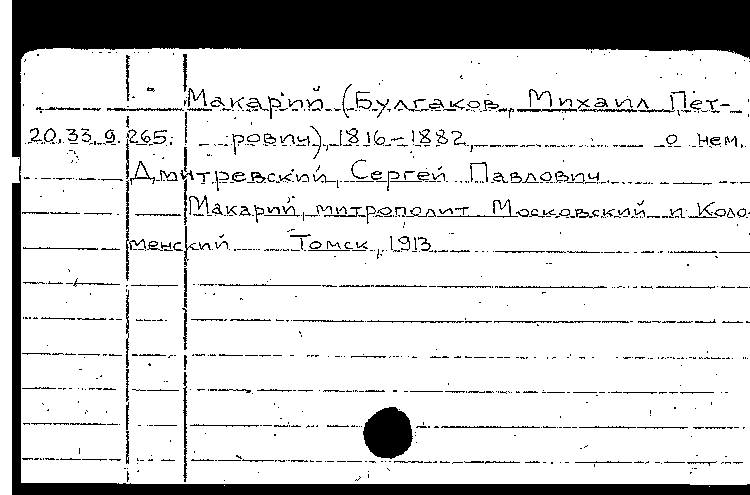 Макарий (Булгаков, Михаил Пет-
20.33.9.265. рович), 1816-1882, о нем.
Дмитревский, Сергей Павлович
Макарий, митрополит Московский и Коло-
менский Томск, 1913